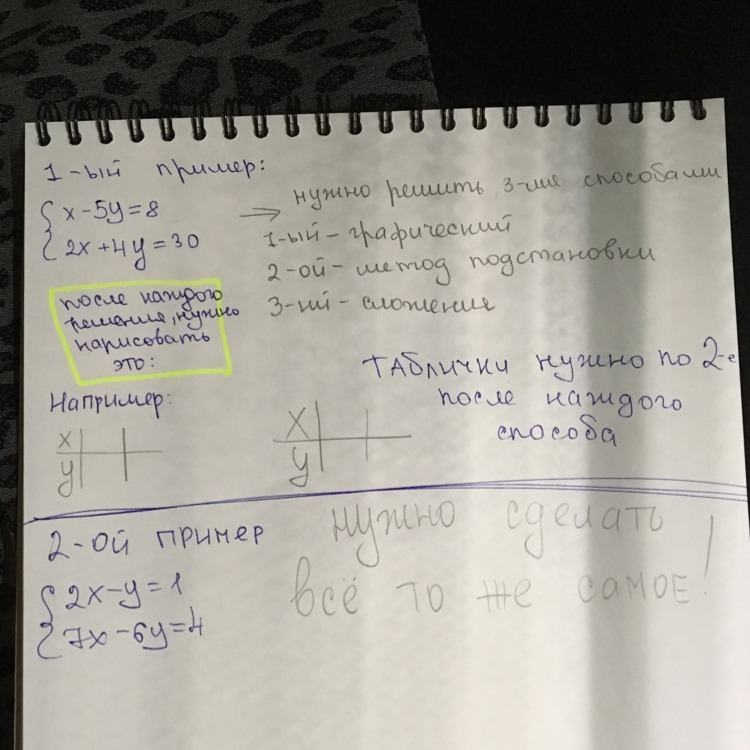 1-ый пример:
{ x-5y=8
2x+4y=30
→ нужно решить 3-мя способами
1-ый - графический
2-ой - метод подстановки
3-ий - сложение
после каждого
решения, нужно
нарисовать
это:
Таблички нужно по 2-е
после каждого
способа
Например:
x
y
x
y
2-ой пример
{ 2x-y=1
7x-6y=4
нужно сделать
всё то же самое!